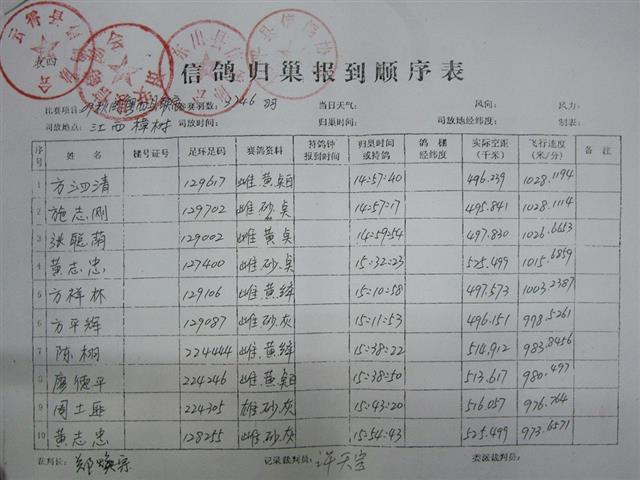 信鸽归巢报到顺序表
比赛项目: 参赛羽数: 3746 羽 当日天气: 风向: 风力:
司放地点: 江西樟树 司放时间: 归巢时间: 司放地经纬度: 制表:
序号 姓名 棚号证号 足环足码 赛鸽资料 持鸽钟报到时间 归巢时间或持鸽 鸽棚经纬度 实际空距(千米) 飞行速度(米/分) 备注
1 方泗清 129617 雌.黄 14:57:40 496.239 1028.1194
2 施志刚 129702 雌.砂 14:57:17 495.841 1028.1114
3 洪聪荫 129002 雌.黄 14:59:54 497.830 1026.6653
4 黄志忠 127400 雌.砂 15:32:23 525.499 1015.6859
5 方祥林 129106 雌.黄 15:10:58 497.573 1003.2387
6 方平辉 129087 雌.砂.灰 15:11:53 496.151 998.5261
7 陈栩 224444 雌.黄 15:38:22 514.912 983.8456
8 廖德平 224246 雌.黄 15:38:50 513.617 980.497
9 周土 224305 雄.砂.灰 15:43:20 516.057 976.764
10 黄志忠 128255 雌.砂.灰 15:54:43 525.499 973.6571
裁判长: 郑 记录裁判员: 许天 委派裁判员: